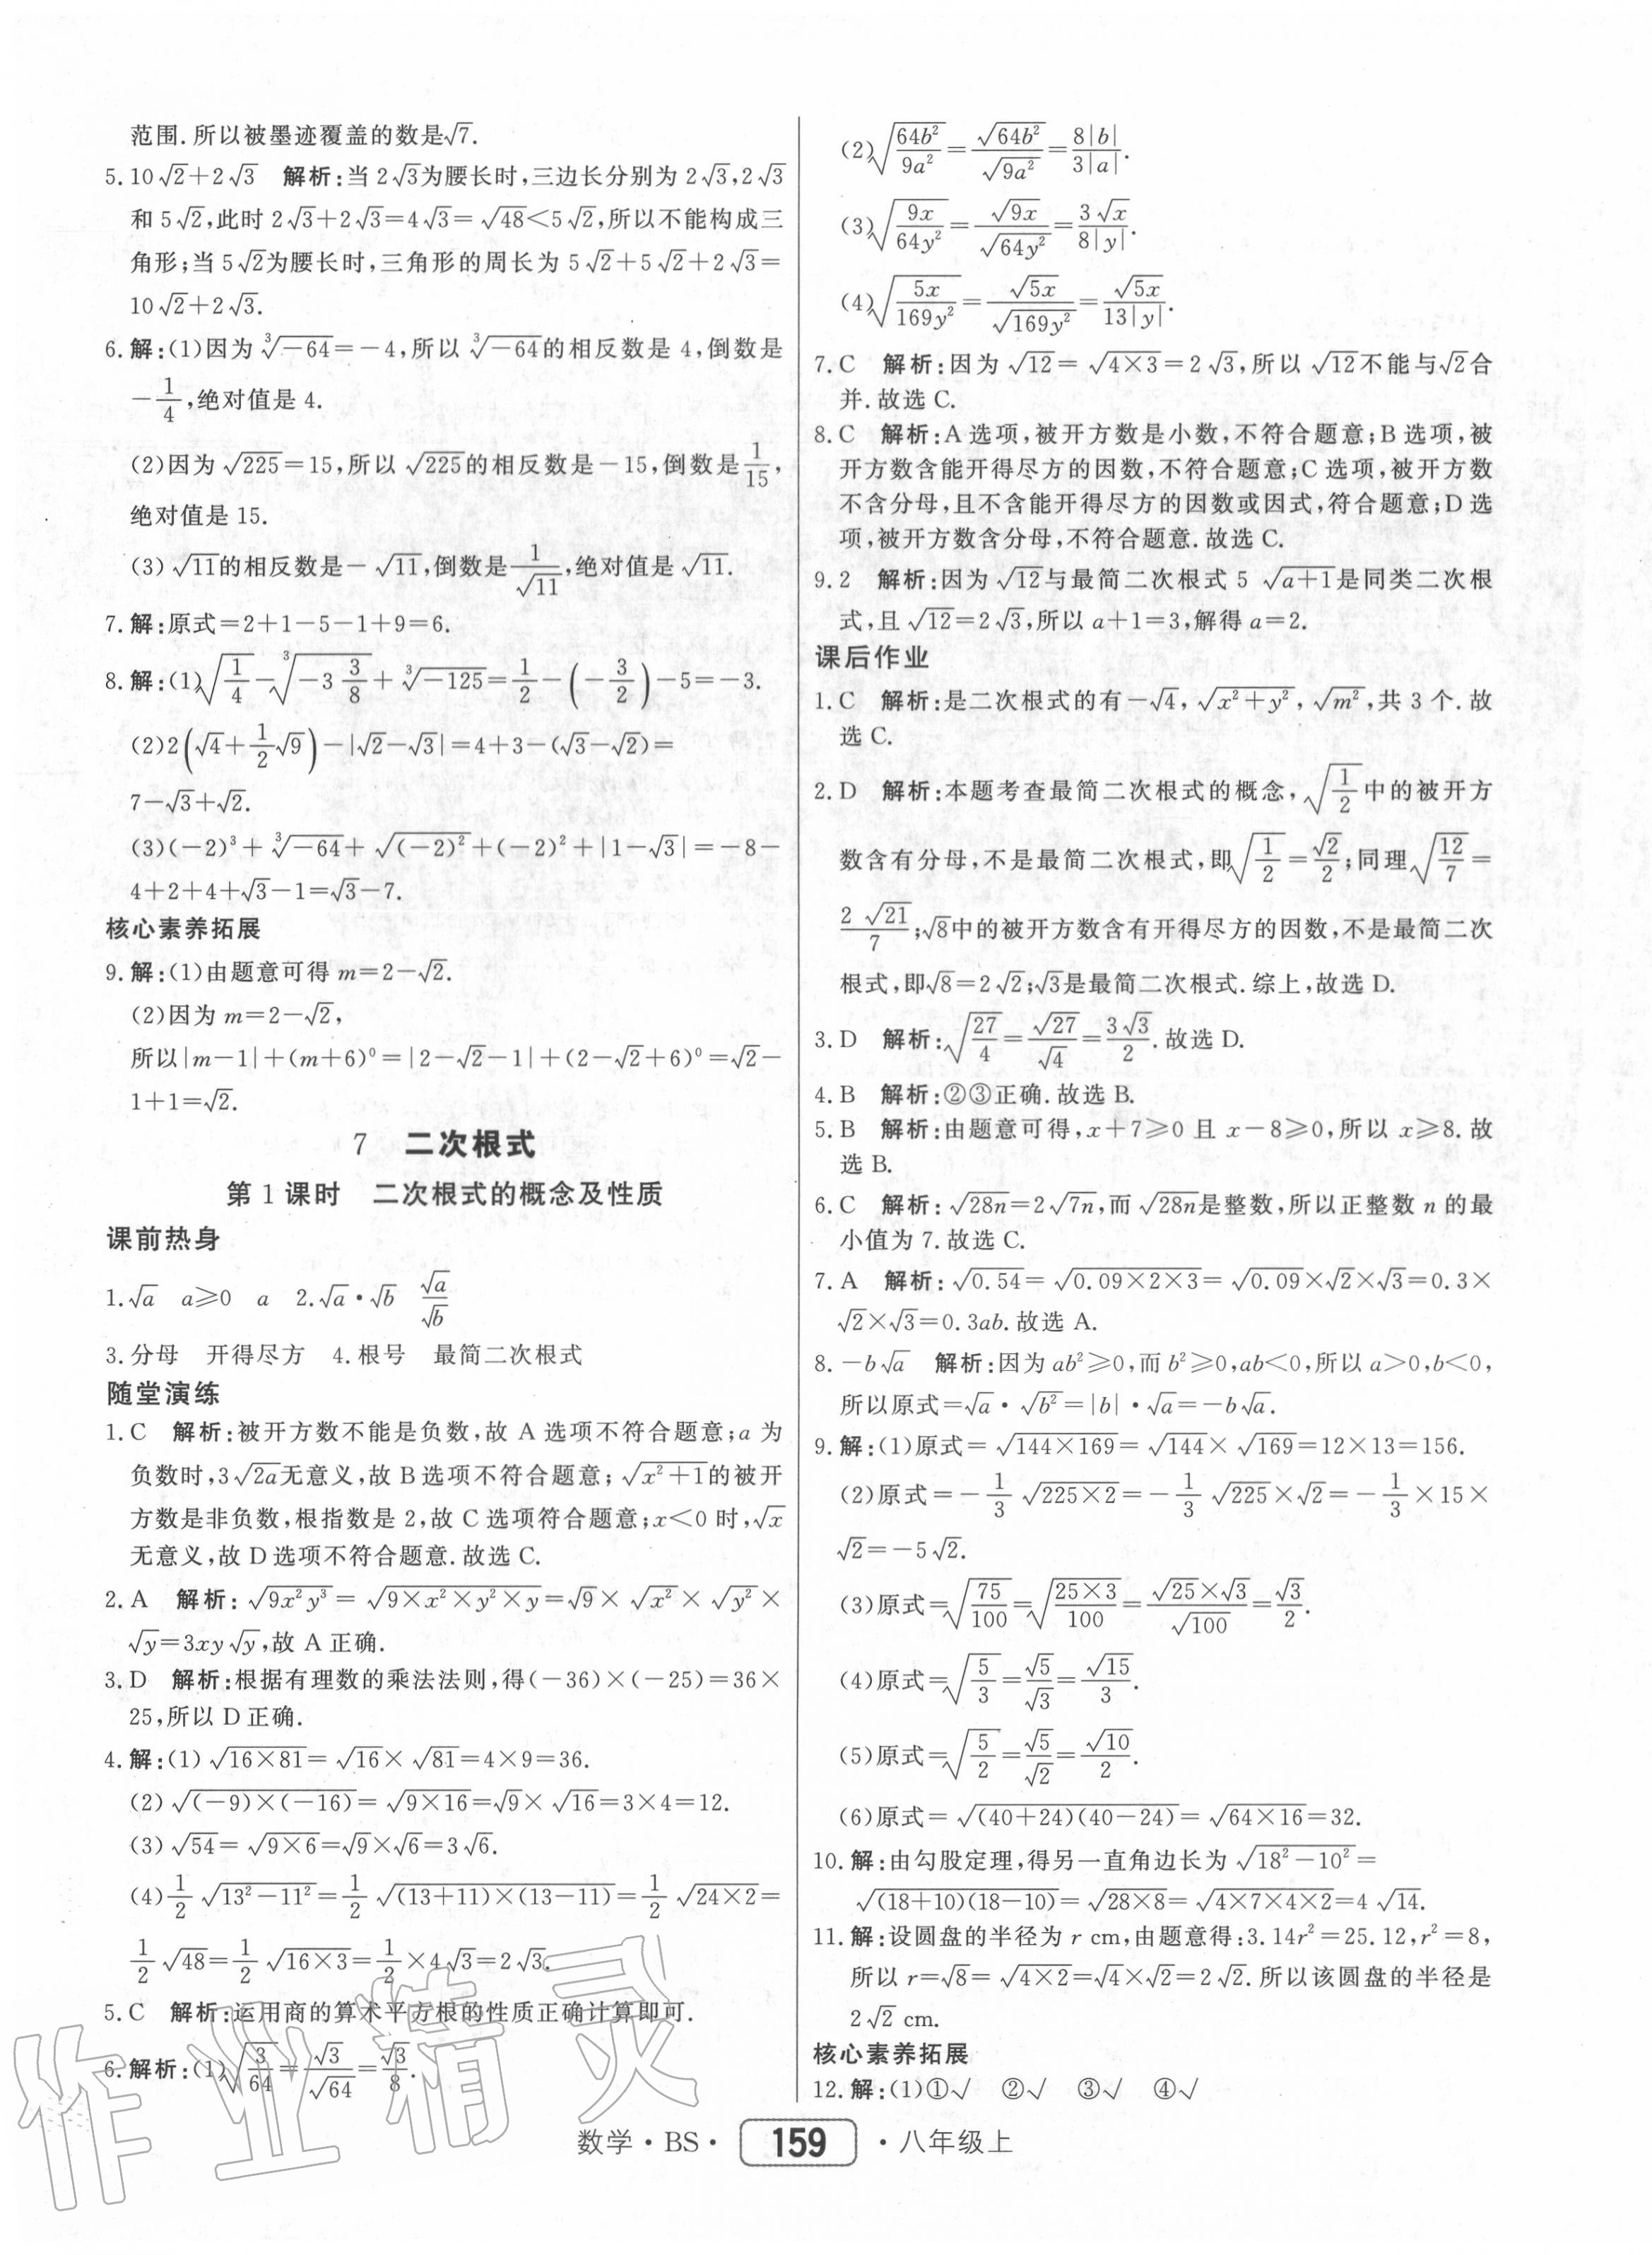 范围.所以被墨迹覆盖的数是√7.
5.10√2+2√3 解析:当2√3为腰长时,三边长分别为2√3,2√3
和5√2,此时2√3+2√3=4√3=√48<5√2,所以不能构成三
角形;当5√2为腰长时,三角形的周长为5√2+5√2+2√3=
10√2+2√3.
6.解:(1)因为∛(-64)=-4,所以∛(-64)的相反数是4,倒数是
-1/4,绝对值是4.
(2)因为√225=15,所以√225的相反数是-15,倒数是1/15,
绝对值是15.
(3)√11的相反数是-√11,倒数是1/√11,绝对值是√11.
7.解:原式=2+1-5-1+9=6.
8.解:(1)√(1/4)-∛(-3 3/8)+∛(-125)=1/2-(-3/2)-5=-3.
(2)2(√4+1/2√9)-|√2-√3|=4+3-(√3-√2)=
7-√3+√2.
(3)(-2)³+∛(-64)+√((-2)²)+(-2)²+|1-√3|=-8-
4+2+4+√3-1=√3-7.
核心素养拓展
9.解:(1)由题意可得m=2-√2.
(2)因为m=2-√2,
所以|m-1|+(m+6)⁰=|2-√2-1|+(2-√2+6)⁰=√2-
1+1=√2.
7 二次根式
第1课时 二次根式的概念及性质
课前热身
1.√a a≥0 a 2.√a·√b √a/√b
3.分母 开得尽方 4.根号 最简二次根式
随堂演练
1.C 解析:被开方数不能是负数,故A选项不符合题意;a为
负数时,3√(2a)无意义,故B选项不符合题意;√(x²+1)的被开
方数是非负数,根指数是2,故C选项符合题意;x<0时,√x
无意义,故D选项不符合题意.故选C.
2.A 解析:√(9x²y³)=√(9×x²×y²×y)=√9×√(x²)×√(y²)×
√y=3xy√y,故A正确.
3.D 解析:根据有理数的乘法法则,得(-36)×(-25)=36×
25,所以D正确.
4.解:(1)√(16×81)=√16×√81=4×9=36.
(2)√((-9)×(-16))=√(9×16)=√9×√16=3×4=12.
(3)√54=√(9×6)=√9×√6=3√6.
(4)1/2√(13²-11²)=1/2√((13+11)×(13-11))=1/2√(24×2)=
1/2√48=1/2√(16×3)=1/2×4√3=2√3.
5.C 解析:运用商的算术平方根的性质正确计算即可.
6.解析:(1)√(3/64)=√3/√64=√3/8.
(2)√(64b²/9a²)=√(64b²)/√(9a²)=8|b|/3|a|.
(3)√(9x/64y²)=√(9x)/√(64y²)=3√x/8|y|.
(4)√(5x/169y²)=√(5x)/√(169y²)=√(5x)/13|y|.
7.C 解析:因为√12=√(4×3)=2√3,所以√12不能与√2合
并.故选C.
8.C 解析:A选项,被开方数是小数,不符合题意;B选项,被
开方数含能开得尽方的因数,不符合题意;C选项,被开方数
不含分母,且不含能开得尽方的因数或因式,符合题意;D选
项,被开方数含分母,不符合题意.故选C.
9.2 解析:因为√12与最简二次根式5√(a+1)是同类二次根
式,且√12=2√3,所以a+1=3,解得a=2.
课后作业
1.C 解析:是二次根式的有-√4,√(x²+y²),√(m²),共3个.故
选C.
2.D 解析:本题考查最简二次根式的概念,√(1/2)中的被开方
数含有分母,不是最简二次根式,即√(1/2)=√2/2;同理√(12/7)=
2√21/7;√8中的被开方数含有开得尽方的因数,不是最简二次
根式,即√8=2√2;√3是最简二次根式.综上,故选D.
3.D 解析:√(27/4)=√27/√4=3√3/2.故选D.
4.B 解析:②③正确.故选B.
5.B 解析:由题意可得,x+7≥0且x-8≥0,所以x≥8.故
选B.
6.C 解析:√(28n)=2√(7n),而√(28n)是整数,所以正整数n的最
小值为7.故选C.
7.A 解析:√0.54=√(0.09×2×3)=√0.09×√2×√3=0.3×
√2×√3=0.3ab.故选A.
8.-b√a 解析:因为ab²≥0,而b²≥0,ab<0,所以a>0,b<0,
所以原式=√a·√(b²)=|b|·√a=-b√a.
9.解:(1)原式=√(144×169)=√144×√169=12×13=156.
(2)原式=-1/3√(225×2)=-1/3√225×√2=-1/3×15×
√2=-5√2.
(3)原式=√(75/100)=√(25×3/100)=√25×√3/√100=√3/2.
(4)原式=√(5/3)=√5/√3=√15/3.
(5)原式=√(5/2)=√5/√2=√10/2.
(6)原式=√((40+24)(40-24))=√(64×16)=32.
10.解:由勾股定理,得另一直角边长为√(18²-10²)=
√((18+10)(18-10))=√(28×8)=√(4×7×4×2)=4√14.
11.解:设圆盘的半径为r cm,由题意得:3.14r²=25.12,r²=8,
所以r=√8=√(4×2)=√4×√2=2√2.所以该圆盘的半径是
2√2 cm.
核心素养拓展
12.解:(1)①√ ②√ ③√ ④√
数学·BS· 159 ·八年级上
作业精灵